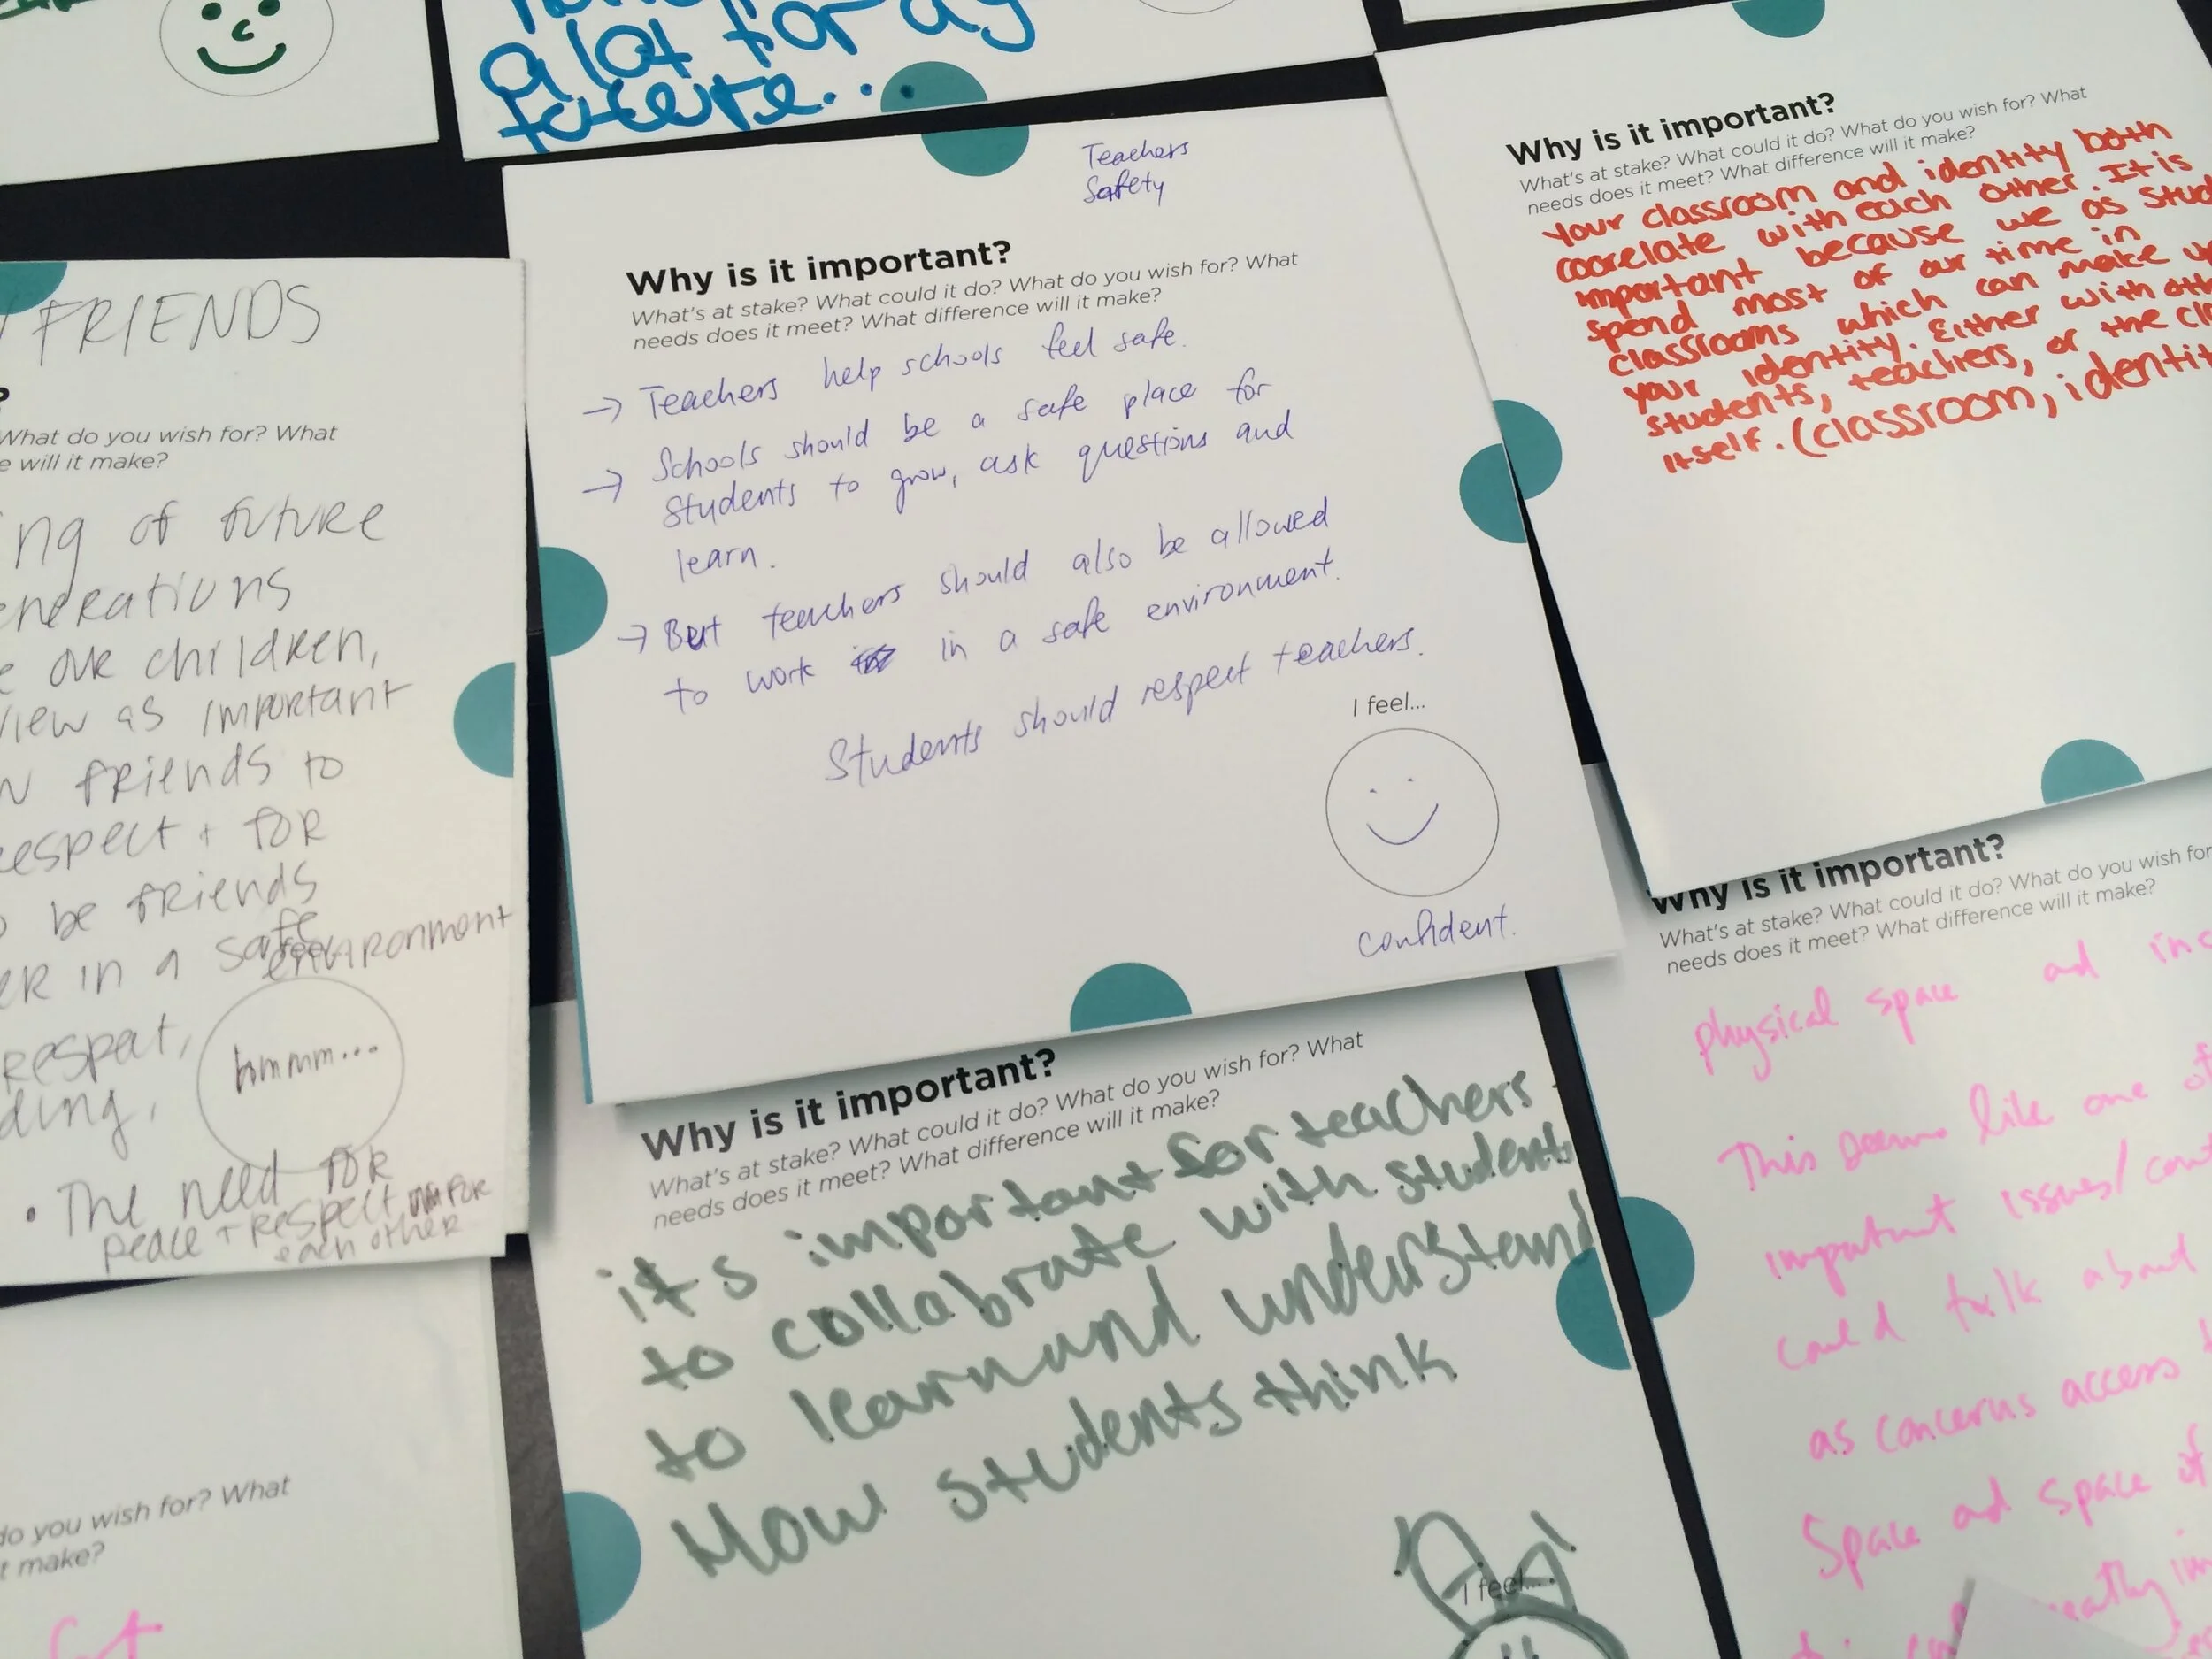 a lot for my
future...
Teachers
Safety
Why is it important?
What's at stake? What could it do? What do you wish for? What
needs does it meet? What difference will it make?
→ Teachers help schools feel safe.
→ Schools should be a safe place for
students to grow, ask questions and
learn.
→ But teachers should also be allowed
to work in a safe environment.
Students should respect teachers.
I feel...
confident.
Why is it important?
What's at stake? What could it do? What do you wish for? What
needs does it meet? What difference will it make?
Your classroom and identity both
coorelate with each other. It is
important because we as
spend most of our time in
classrooms which can make
your identity. Either with
students, teachers, or the
itself. (classroom,
FRIENDS
?
What do you wish for? What
will it make?
of future
our children,
as important
friends to
+ for
be friends
in a safe
environment
feel
hmmm...
• The need for
peace + respect for
each other
Why is it important?
What's at stake? What could it do? What do you wish for? What
needs does it meet? What difference will it make?
it's important for teachers
to collabrate with students
to learn and understand
How students think
I feel...
Why is it important?
What's at stake? What could it do? What do you wish for
needs does it meet? What difference will it make?
physical space ad
This seems like one of
important issues/
could talk about
as concerns access
Space ad space of
do you wish for? What
make?